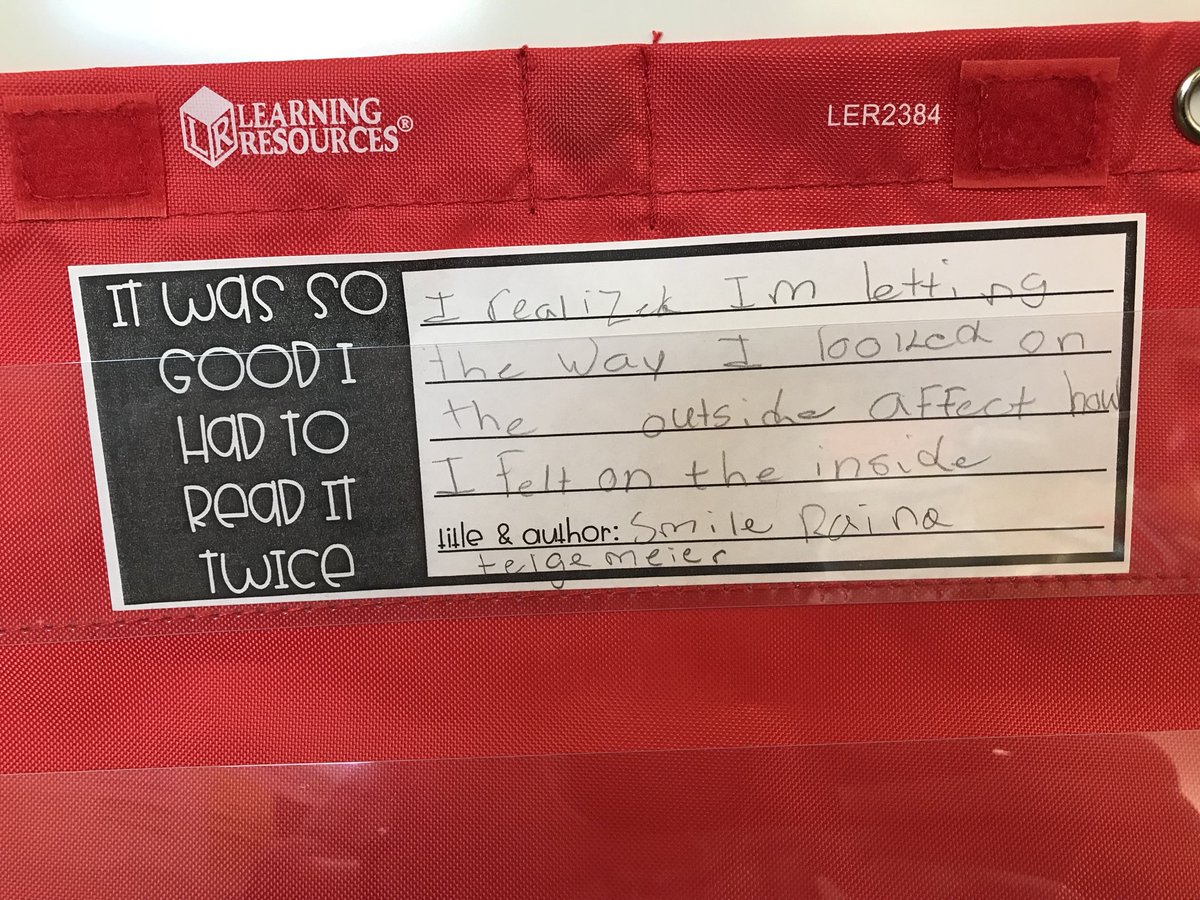 LEARNING
RESOURCES®
LR
LER2384
IT WAS SO
GOOD I
HAD TO
READ IT
TWICE
I realized Im letting
the way I looked on
the outside affect how
I felt on the inside
title & author: Smile Raina
telgemeier